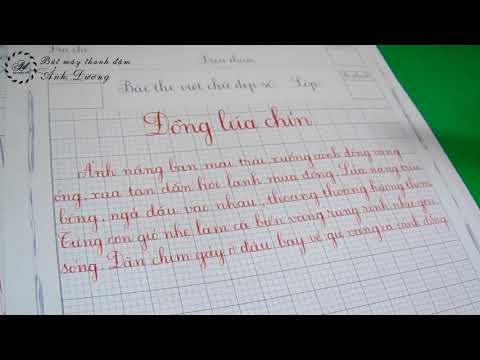 Bút máy thanh đậm
Ánh Dương
Địa chỉ
Điểm thẩm
Bài thi viết chữ đẹp số Lớp
Đồng lúa chín
Ánh nắng ban mai trải xuống cánh đồng vàng
óng, xua tan dần hơi lạnh mùa đông. Lúa nặng trĩu
bông, ngả đầu vào nhau, thoang thoảng hương thơm.
Từng cơn gió nhẹ làm cả biển vàng rung rinh như gợn
sóng. Đàn chim gáy ở đâu bay về gù vang cả cánh đồng